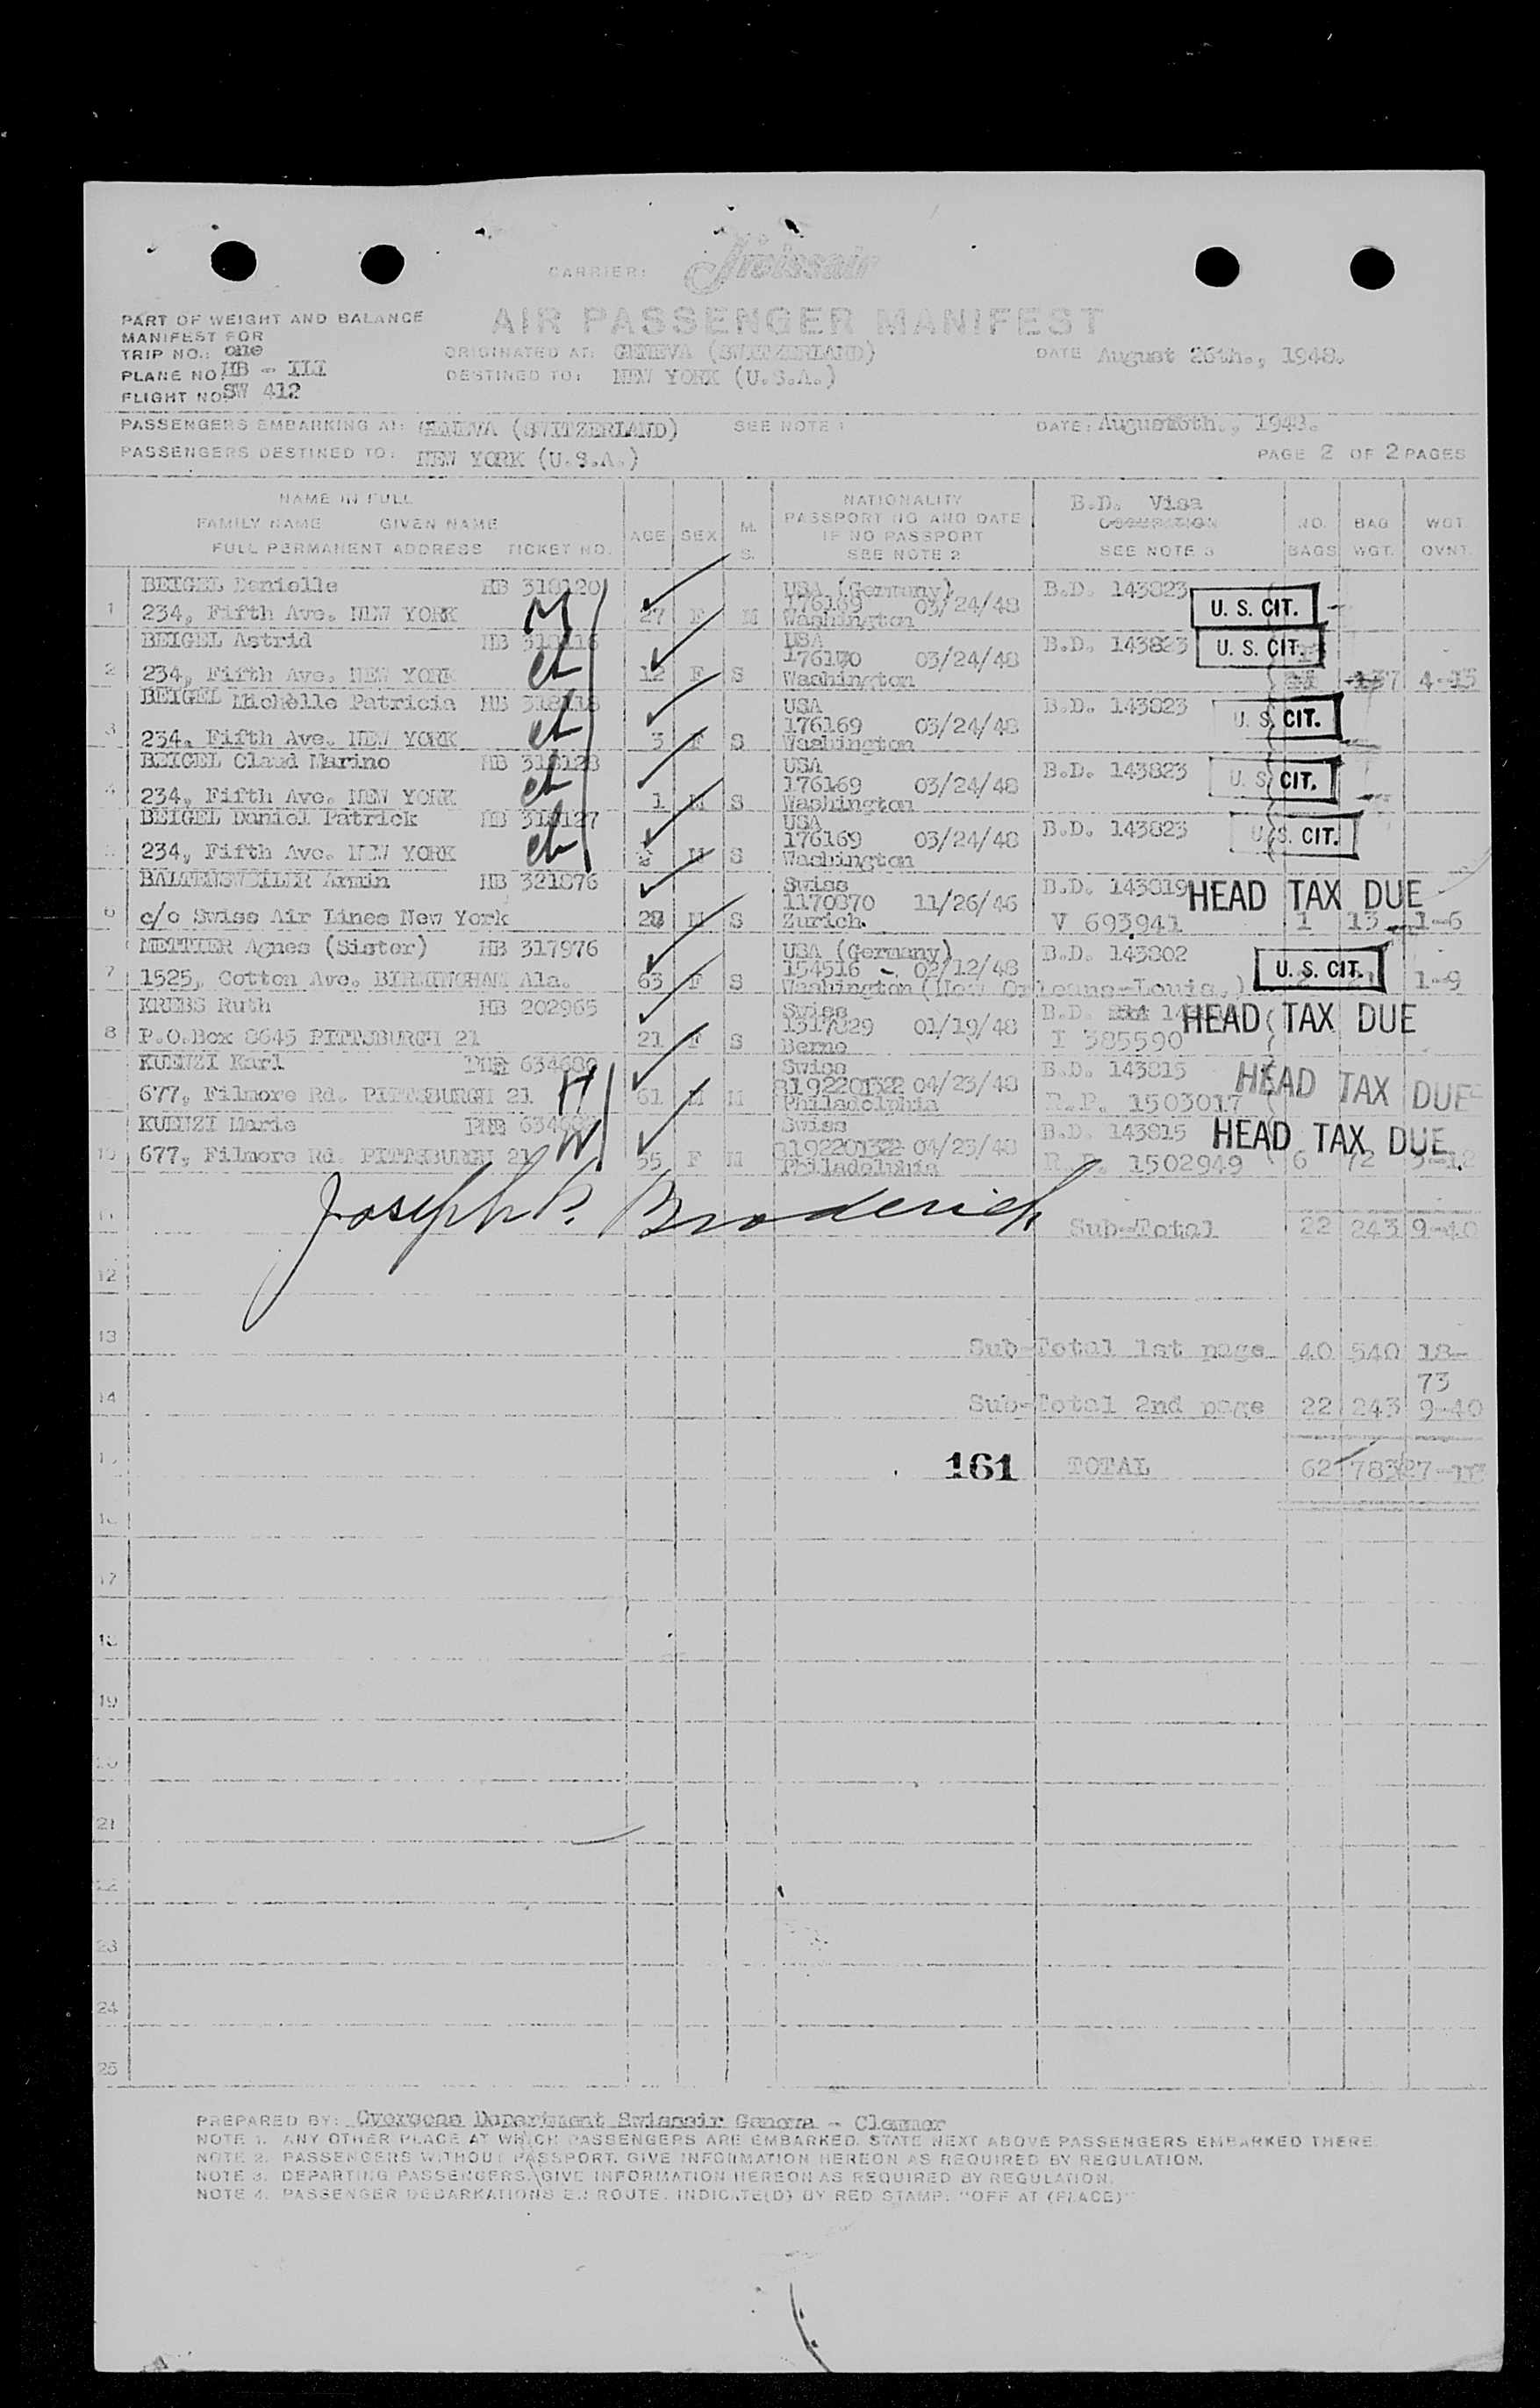 CARRIER: Swissair
AIR PASSENGER MANIFEST
PART OF WEIGHT AND BALANCE
MANIFEST FOR
TRIP NO.: one
PLANE NO. HB - ILI
FLIGHT NO. SW 412
ORIGINATED AT: GENEVA (SWITZERLAND)
DATE August 26th., 1948.
DESTINED TO: NEW YORK (U.S.A.)
PASSENGERS EMBARKING AT: GENEVA (SWITZERLAND) SEE NOTE 1
DATE: 1948.
PASSENGERS DESTINED TO: NEW YORK (U.S.A.)
PAGE 2 OF 2 PAGES
NAME IN FULL
FAMILY NAME GIVEN NAME
FULL PERMANENT ADDRESS TICKET NO.
AGE SEX M. S.
NATIONALITY
PASSPORT NO AND DATE
IF NO PASSPORT
SEE NOTE 2
B.D. Visa
OCCUPATION
SEE NOTE 3
NO. BAGS
BAG WGT.
WGT. OVNT.
1 BEIGEL Danielle HB 318120 USA (Germany) B.D. 143823
234, Fifth Ave. NEW YORK M 27 F M 176169 03/24/48 Washington U. S. CIT.
2 BEIGEL Astrid HB USA B.D. 143823
234, Fifth Ave. NEW YORK ch 12 F S 176170 03/24/48 Washington U. S. CIT. 4-
3 BEIGEL Michèlle Patricia HB USA B.D. 143823
234, Fifth Ave. NEW YORK ch 3 F S 176169 03/24/48 Washington U. S. CIT.
4 BEIGEL Claud Marino HB USA B.D. 143823
234, Fifth Ave. NEW YORK ch 1 M S 176169 03/24/48 Washington U. S. CIT.
5 BEIGEL Daniel Patrick HB USA B.D. 143823
234, Fifth Ave. NEW YORK ch M S 176169 03/24/48 Washington U. S. CIT.
6 BALTENSWEILER Armin HB 321876 Swiss B.D. 143819 HEAD TAX DUE
c/o Swiss Air Lines New York M S 1170870 11/26/46 Zurich. V 693941 1 13 1-6
7 METTIER Agnes (Sister) HB 317976 USA (Germany) B.D. 143802
1525, Cotton Ave. BIRMINGHAM Ala. 63 F S 154516 - 02/12/48 Washington (New Orleans-Louis.) U. S. CIT. 2 21 1-9
8 KREBS Ruth HB 202965 Swiss B.D. HEAD TAX DUE
P.O.Box 8645 PITTSBURGH 21 21 F S 1317829 01/19/48 Berne I 385590
KUENZI Karl 634680 Swiss B.D. 143815 HEAD TAX DUE
677, Filmore Rd. PITTSBURGH 21 H 61 M M 04/23/48 Philadelphia R.P. 1503017
10 KUENZI Marie Swiss B.D. 143815 HEAD TAX DUE
677, Filmore Rd. PITTSBURGH 21 W 55 F M 04/23/48 Philadelphia R.P. 1502949 6 72
11 Joseph P. Broderick Sub-Total 22 243 9-40
12
13 Sub-Total 1st page 40 540 18-73
14 Sub-Total 2nd page 22 243 9-40
15 161 TOTAL 62 783
16
17
18
19
20
21
22
23
24
25
PREPARED BY: Overseas Department Swissair Geneva -
NOTE 1. ANY OTHER PLACE AT WHICH PASSENGERS ARE EMBARKED. STATE NEXT ABOVE PASSENGERS EMBARKED THERE.
NOTE 2. PASSENGERS WITHOUT PASSPORT. GIVE INFORMATION HEREON AS REQUIRED BY REGULATION.
NOTE 3. DEPARTING PASSENGERS. GIVE INFORMATION HEREON AS REQUIRED BY REGULATION.
NOTE 4. PASSENGER DEBARKATIONS EN ROUTE. INDICATE(D) BY RED STAMP. "OFF AT (PLACE)"